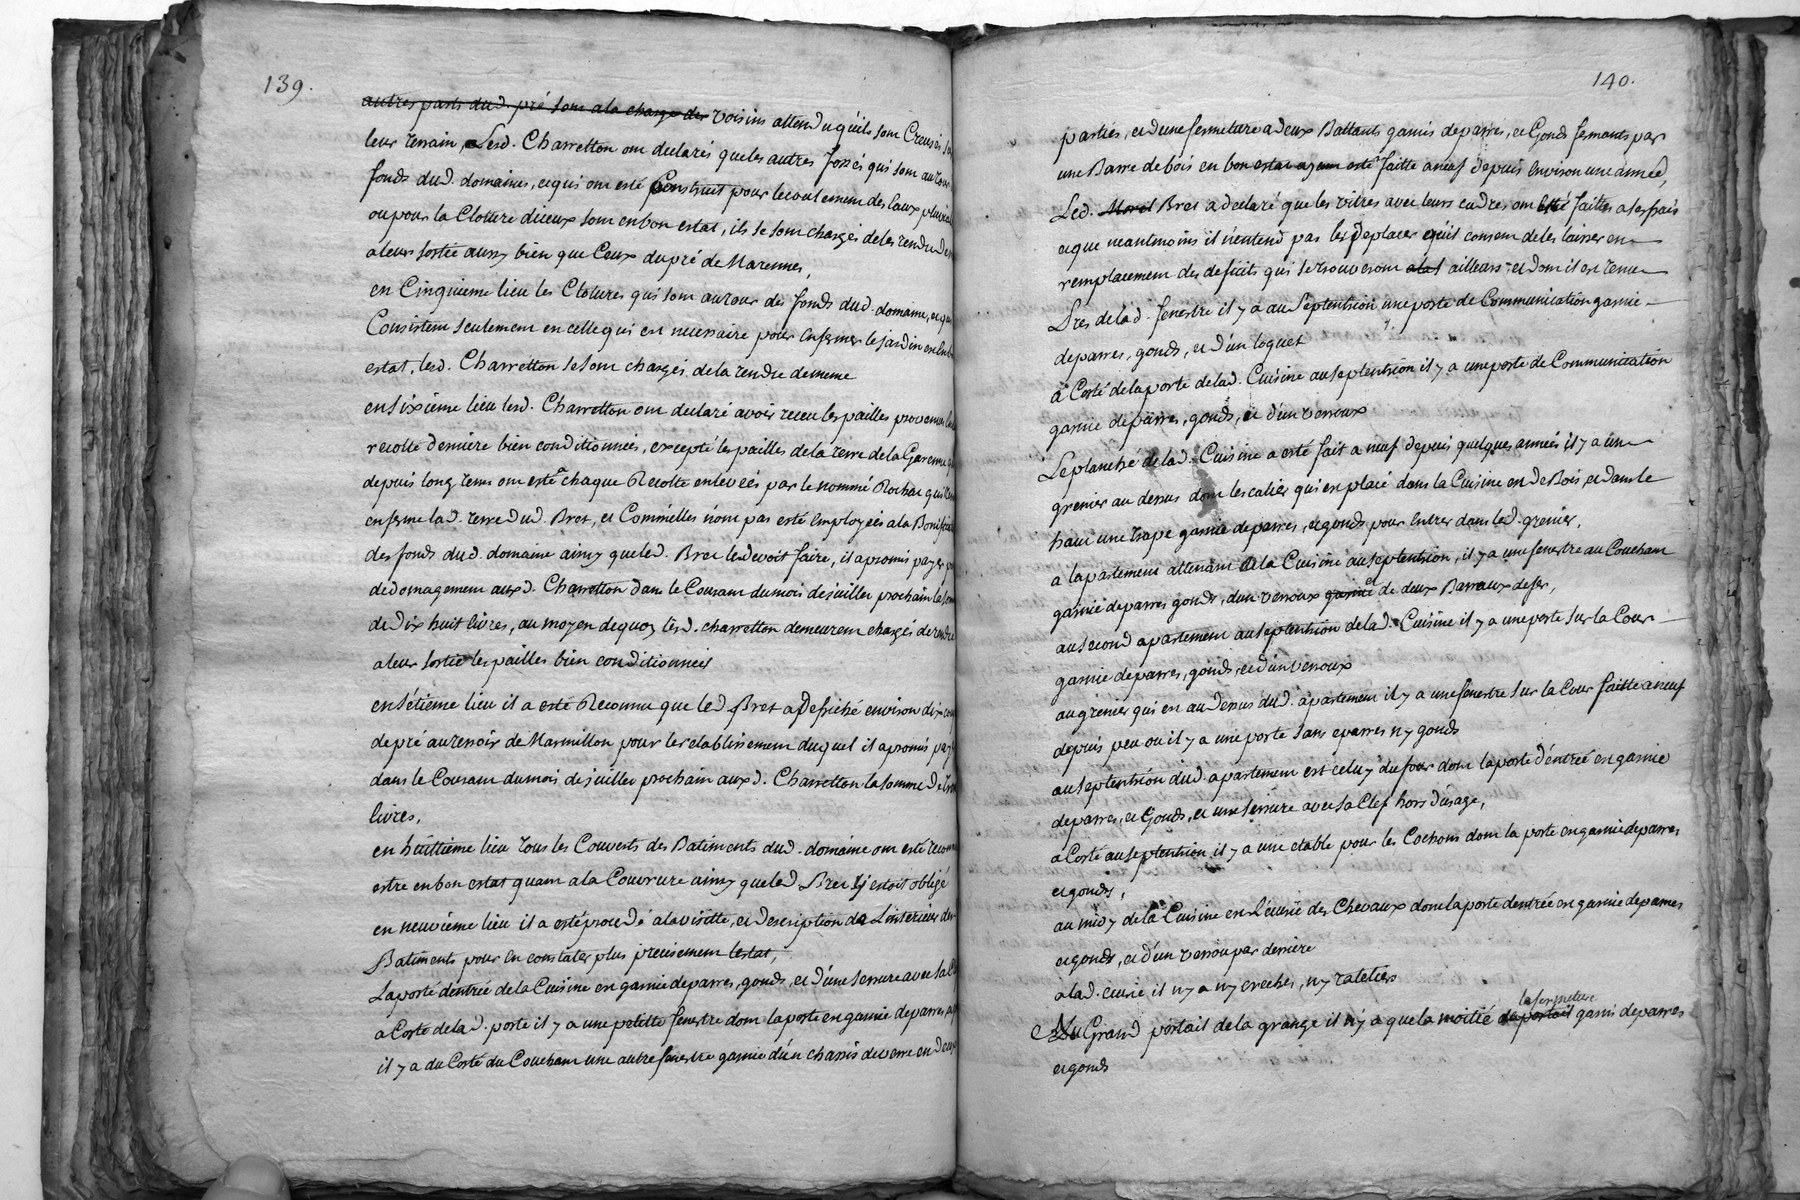 139.
autres parts dud. pré sont a la charge des voisins attendu qu'ils sont Creusés
leur terrain, Lesd. Charretton ont declarés que les autres fossés qui sont autour
fonds dud. domaine, et qui ont esté Construit pour lecoulement des Eaux
ou pour la Cloture diceux sont en bon estat, ils se sont chargés de les rendre
a leur sortie aussy bien que Ceux du pré de Marennes,
en Cinquieme lieu les Clotures qui sont autour des fonds dud. domaine, et
Consistent seulement en celle qui est necessaire pour Enfermer le jardin
estat, lesd. Charretton se sont chargés de la rendre de meme
en sixieme lieu lesd. Charretton ont declaré avoir receu les pailles
recolte derniere bien conditionnées, excepté les pailles de la terre de la Garenne
depuis long tems ont esté a chaque Recolte enlevées par le nommé Rochat
enferme lad. terre dud. Bret, et Comm'elles n'ont pas esté Employées a la
des fonds dud. domaine ainsy que led. Bret le devoit faire, il a promis payer
dedomagement auxd. Charretton dans le Courant du mois de juillet prochain la
de dix huit livres, au moyen de quoy lesd. charretton demeurent chargés de rendre
a leur sortie les pailles bien conditionnées
en sétieme lieu il a esté Reconnu que led Bret a Defriché environ dix
de pré au terroir de Marmillon pour le retablissement duquel il a promis
dans le Courant du mois de juillet prochain auxd. Charretton la somme de
livres,
en huittieme lieu tous les Couverts des Batiments dud. domaine ont esté
estre en bon estat quant a la Couverture ainsy que led Bret y estoit obligé
en neuvieme lieu il a esté procedé a la visitte, et description de L'interieur des
Batiments pour En constater plus precisement lestat,
La porte dentrée de la Cuisine est garnie deparres, gonds, et d'une serrure avec sa
a Corté de lad. porte il y a une petitte fenestre dont la porte est garnie deparres
il y a du Corté du Couchant une autre fenestre garnie d'un chassis de verre en
140.
parties, et d'une fermeture a deux Battants garnis deparres, et Gonds fermants par
une Barre de bois en bon estat ayant esté faitte a neuf depuis Environ une année,
Led. Bret a declaré que les vitres avec leurs cadres ont Esté faittes a ses frais
et que neantmoins il n'entend pas les deplacer qu'il consent de les laisser en
remplacement des deficits qui se trouveront ailleurs et dont il est tenu
Pres de lad. fenestre il y a au Septentrion une porte de Communication garnie
deparres, gonds, et d'un loquet
a Corté de la porte de lad. Cuisine au septentrion il y a une porte de Communication
garnie deparres, gonds, et d'un verroux
Le planché de lad. Cuisine a esté fait a neuf depuis quelques années il y a un
grenier au dessus dont lescalier qui est placé dans la Cuisine est de Bois et dans le
haut une trape garnie deparres, et gonds pour Entrer dans led. grenier,
a lapartement attenant a la Cuisine au septentrion, il y a une fenestre au Couchant
garnie deparres gonds, d'un verroux garnie et de deux Barraux de fer,
au second apartement au septentrion de lad. Cuisine il y a une porte sur la Cour
garnie deparres, gonds, et d'un verroux
au grenier qui est au dessus dud. apartement il y a une fenestre sur la Cour faitte a neuf
depuis peu ou il y a une porte sans eparres ny gonds
au septentrion dud. apartement est celuy du four dont la porte d'entrée est garnie
deparres, et Gonds, et une serrure avec sa Clef hors d'usage,
a Corté au septentrion il y a une etable pour les Cochons dont la porte est garnie deparres
et gonds,
au midy de la Cuisine est L'écurie des Chevaux dont la porte dentrée est garnie deparres
et gonds, et d'un verrou par derriere
a lad. écurie il n'y a ny creches, ny rateliers
Au Grand portail de la grange il n'y a que la moitié du portail la fermeture garni deparres
et gonds